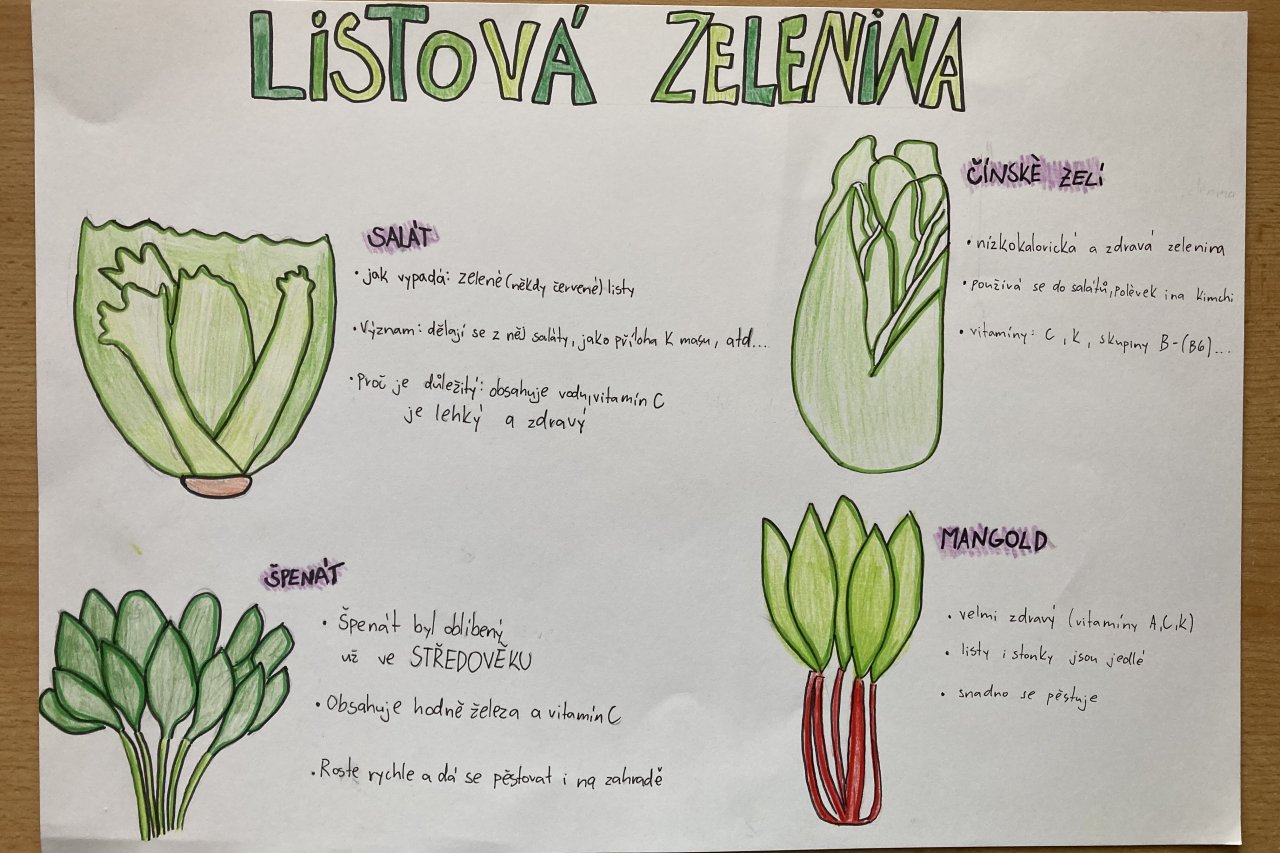 LISTOVÁ ZELENINA
SALÁT
• jak vypadá: zelené (někdy červené) listy
• Význam: dělají se z něj saláty, jako příloha k masu, atd...
• Proč je důležitý: obsahuje vodu, vitamín C
je lehký a zdravý
ČÍNSKÈ ZELÍ
• nízkokalorická a zdravá zelenina
• používá se do salátů, polévek i na kimchi
• vitamíny: C, K, skupiny B-(B6)...
ŠPENÁT
• Špenát byl oblíbený
už ve STŘEDOVĚKU
• Obsahuje hodně železa a vitamín C
• Roste rychle a dá se pěstovat i na zahradě
MANGOLD
• velmi zdravý (vitamíny A,C,K)
• listy i stonky jsou jedlé
• snadno se pěstuje